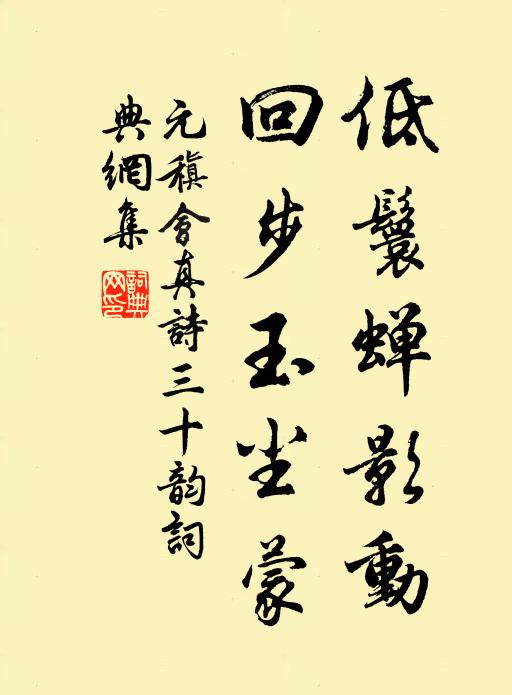 低鬟蝉影動
回步玉尘蒙
元稹會真詩三十韵詞
典網集
詞典
网印